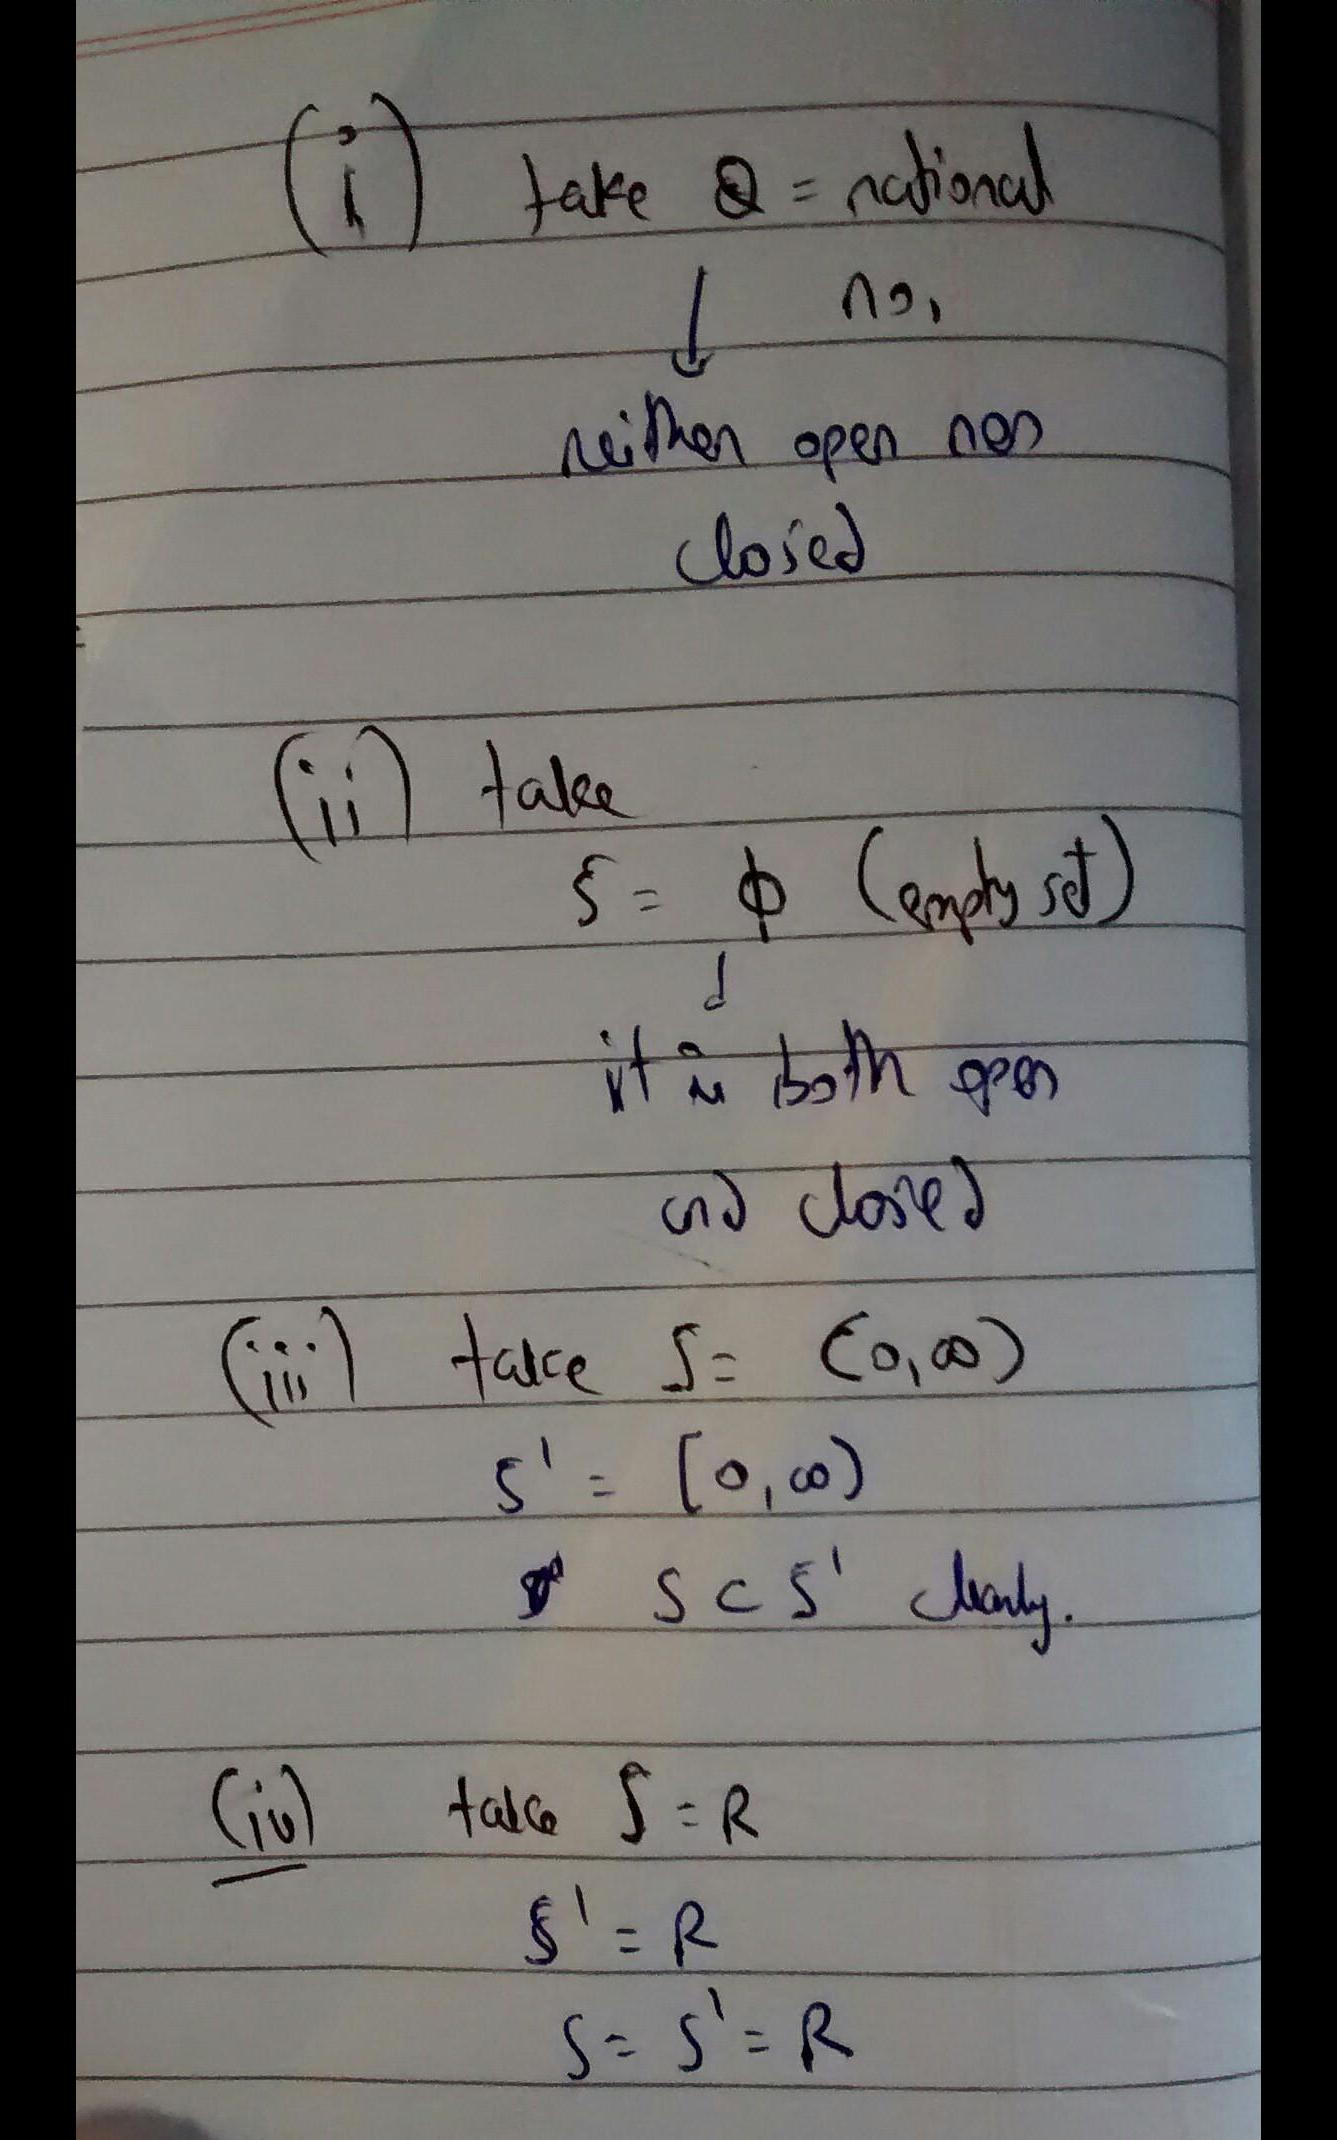 (i) take Q = rational
no,
↓
neither open nor
closed
(ii) take
S = ϕ (empty set)
↓
it is both open
and closed
(iii) take S = (0,∞)
S' = [0,∞)
S ⊂ S' clearly.
(iv) take S = R
S' = R
S = S' = R